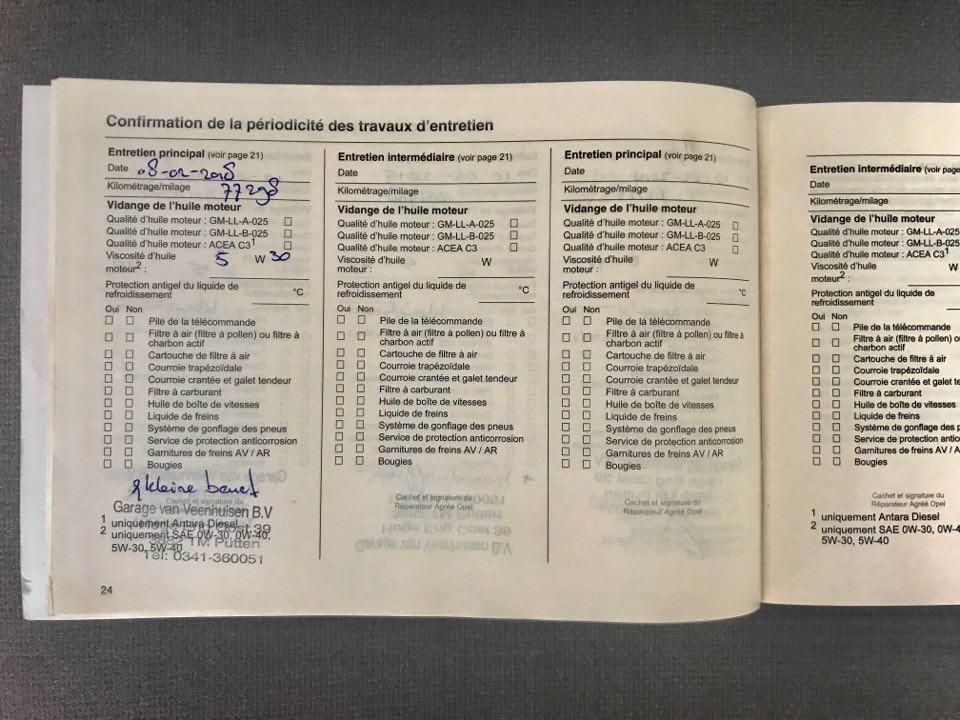 Confirmation de la périodicité des travaux d'entretien
Entretien principal (voir page 21)
Date 08-02-2018
Kilométrage/milage 77298
Vidange de l'huile moteur
Qualité d'huile moteur : GM-LL-A-025
Qualité d'huile moteur : GM-LL-B-025
Qualité d'huile moteur : ACEA C3¹
Viscosité d'huile 5 W 30
moteur² :
Protection antigel du liquide de
refroidissement °C
Oui Non
Pile de la télécommande
Filtre à air (filtre à pollen) ou filtre à
charbon actif
Cartouche de filtre à air
Courroie trapézoïdale
Courroie crantée et galet tendeur
Filtre à carburant
Huile de boîte de vitesses
Liquide de freins
Système de gonflage des pneus
Service de protection anticorrosion
Garnitures de freins AV / AR
Bougies
kleine
Cachet et signature du
Garage van Veenhuisen B.V
Oost 39
TM Putten
Tel: 0341-360051
1 uniquement Antara Diesel
2 uniquement SAE 0W-30, 0W-40,
5W-30, 5W-40
24
Entretien intermédiaire (voir page 21)
Date
Kilométrage/milage
Vidange de l'huile moteur
Qualité d'huile moteur : GM-LL-A-025
Qualité d'huile moteur : GM-LL-B-025
Qualité d'huile moteur : ACEA C3
Viscosité d'huile W
moteur :
Protection antigel du liquide de
refroidissement °C
Oui Non
Pile de la télécommande
Filtre à air (filtre à pollen) ou filtre à
charbon actif
Cartouche de filtre à air
Courroie trapézoïdale
Courroie crantée et galet tendeur
Filtre à carburant
Huile de boîte de vitesses
Liquide de freins
Système de gonflage des pneus
Service de protection anticorrosion
Garnitures de freins AV / AR
Bougies
Cachet et signature du
Réparateur Agréé Opel
Entretien principal (voir page 21)
Date
Kilométrage/milage
Vidange de l'huile moteur
Qualité d'huile moteur : GM-LL-A-025
Qualité d'huile moteur : GM-LL-B-025
Qualité d'huile moteur : ACEA C3
Viscosité d'huile W
moteur :
Protection antigel du liquide de
refroidissement °C
Oui Non
Pile de la télécommande
Filtre à air (filtre à pollen) ou filtre à
charbon actif
Cartouche de filtre à air
Courroie trapézoïdale
Courroie crantée et galet tendeur
Filtre à carburant
Huile de boîte de vitesses
Liquide de freins
Système de gonflage des pneus
Service de protection anticorrosion
Garnitures de freins AV / AR
Bougies
Cachet et signature du
Réparateur Agréé Opel
Entretien intermédiaire (voir page
Date
Kilométrage/milage
Vidange de l'huile moteur
Qualité d'huile moteur : GM-LL-A-025
Qualité d'huile moteur : GM-LL-B-025
Qualité d'huile moteur : ACEA C3¹
Viscosité d'huile W
moteur² :
Protection antigel du liquide de
refroidissement
Oui Non
Pile de la télécommande
Filtre à air (filtre à pollen) ou filtre à
charbon actif
Cartouche de filtre à air
Courroie trapézoïdale
Courroie crantée et galet te
Filtre à carburant
Huile de boîte de vitesses
Liquide de freins
Système de gonflage des p
Service de protection antic
Garnitures de freins AV / A
Bougies
Cachet et signature du
Réparateur Agréé Opel
1 uniquement Antara Diesel
2 uniquement SAE 0W-30, 0W-4
5W-30, 5W-40